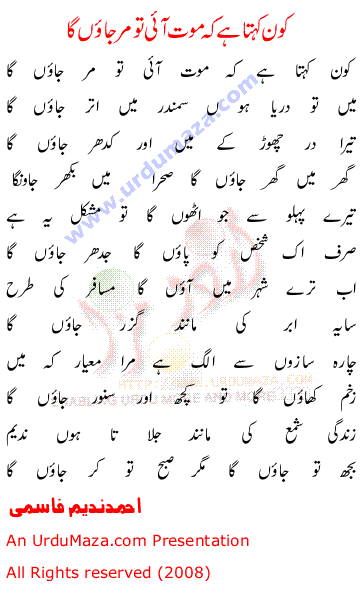 کون کہتا ہے کہ موت آئی تو مر جاؤں گا
کون کہتا ہے کہ موت آئی تو مر جاؤں گا
میں تو دریا ہو ں سمندر میں اتر جاؤں گا
تیرا در چھوڑ کے میں اور کدھر جاؤں گا
گھر میں گھر جاؤں گا صحرا میں بکھر جاونگا
تیرے پہلو سے جو اٹھوں گا تو مشکل یہ ہے
صرف اک شخص کو پاؤں گا جدھر جاؤں گا
اب ترے شہر میں آؤں گا مسافر کی طرح
سایہ ابر کی مانند گزر جاؤں گا
چارہ سازوں سے الگ ہے مرا معیار کہ میں
زخم کھاؤں گا تو کچھ اور سنور جاؤں گا
زندگی شمع کی مانند جلا تا ہوں ندیم
بجھ تو جاؤں گا مگر صبح تو کر جاؤں گا
احمد ندیم قاسمی
An UrduMaza.com Presentation
All Rights reserved (2008)
www.urdumaza.com
اردو مزہ
HTTP://WWW.URDUMAZA.COM